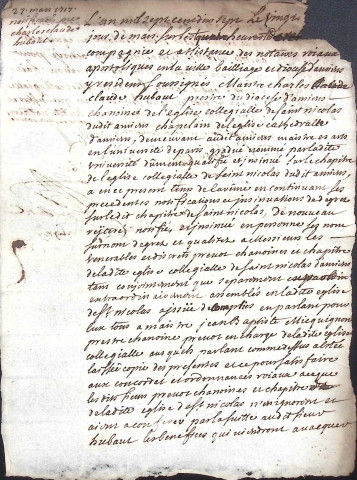 27 mars 1717
charles claude
hubaut
L'an mil sept cens dix sept Le vingt
jour de mars sur les quatre heures de
compagnie et assistance des notaires roiaux
apostoliques en la ville bailliage et diocese d'amiens
y residens soussignés Maistre charles
claude hubaut prestre du diocese d'amiens
chanoine de l'eglise collegialle de saint nicolas
dudit amiens chapelain de l'eglise cathedralle
d'amiens, demeurant audit amiens maistre es arts
en l'université de paris, gradué nommé par ladite
université dument qualifié et insinué sur le chapitre
de l'eglise collegialle de saint nicolas dudit amiens,
a en ce present tems de en continuant ses
precedentes notifications et insinuations de degrez
sur ledit chapitre de saint nicolas, de nouveau
reiteré notifié, et insinué en personne ses nom
surnom degrez et qualitez a Messieurs les
venerables et discrets prevot chanoines et chapitre
de ladite eglise collegialle de saint nicolas d'amiens
tant conjointement que separement
extraordinairement assemblés en ladite eglise
de st nicolas en parlant pour
eux tous a maistre jean Baptiste Miequignon
prestre chanoine prevot en charge de ladite eglise
collegialle auquel parlant comme dessus a été
laissée copie des presentes et ce pour satisfaire
aux concordat et ordonnances roiaux a ce que
lesdits sieurs prevot chanoines et chapitre
de ladite eglise de st nicolas n'en ignorent et
aient a conferer par la suitte audit sieur
hubaut les benefices qui viendront a vacquer